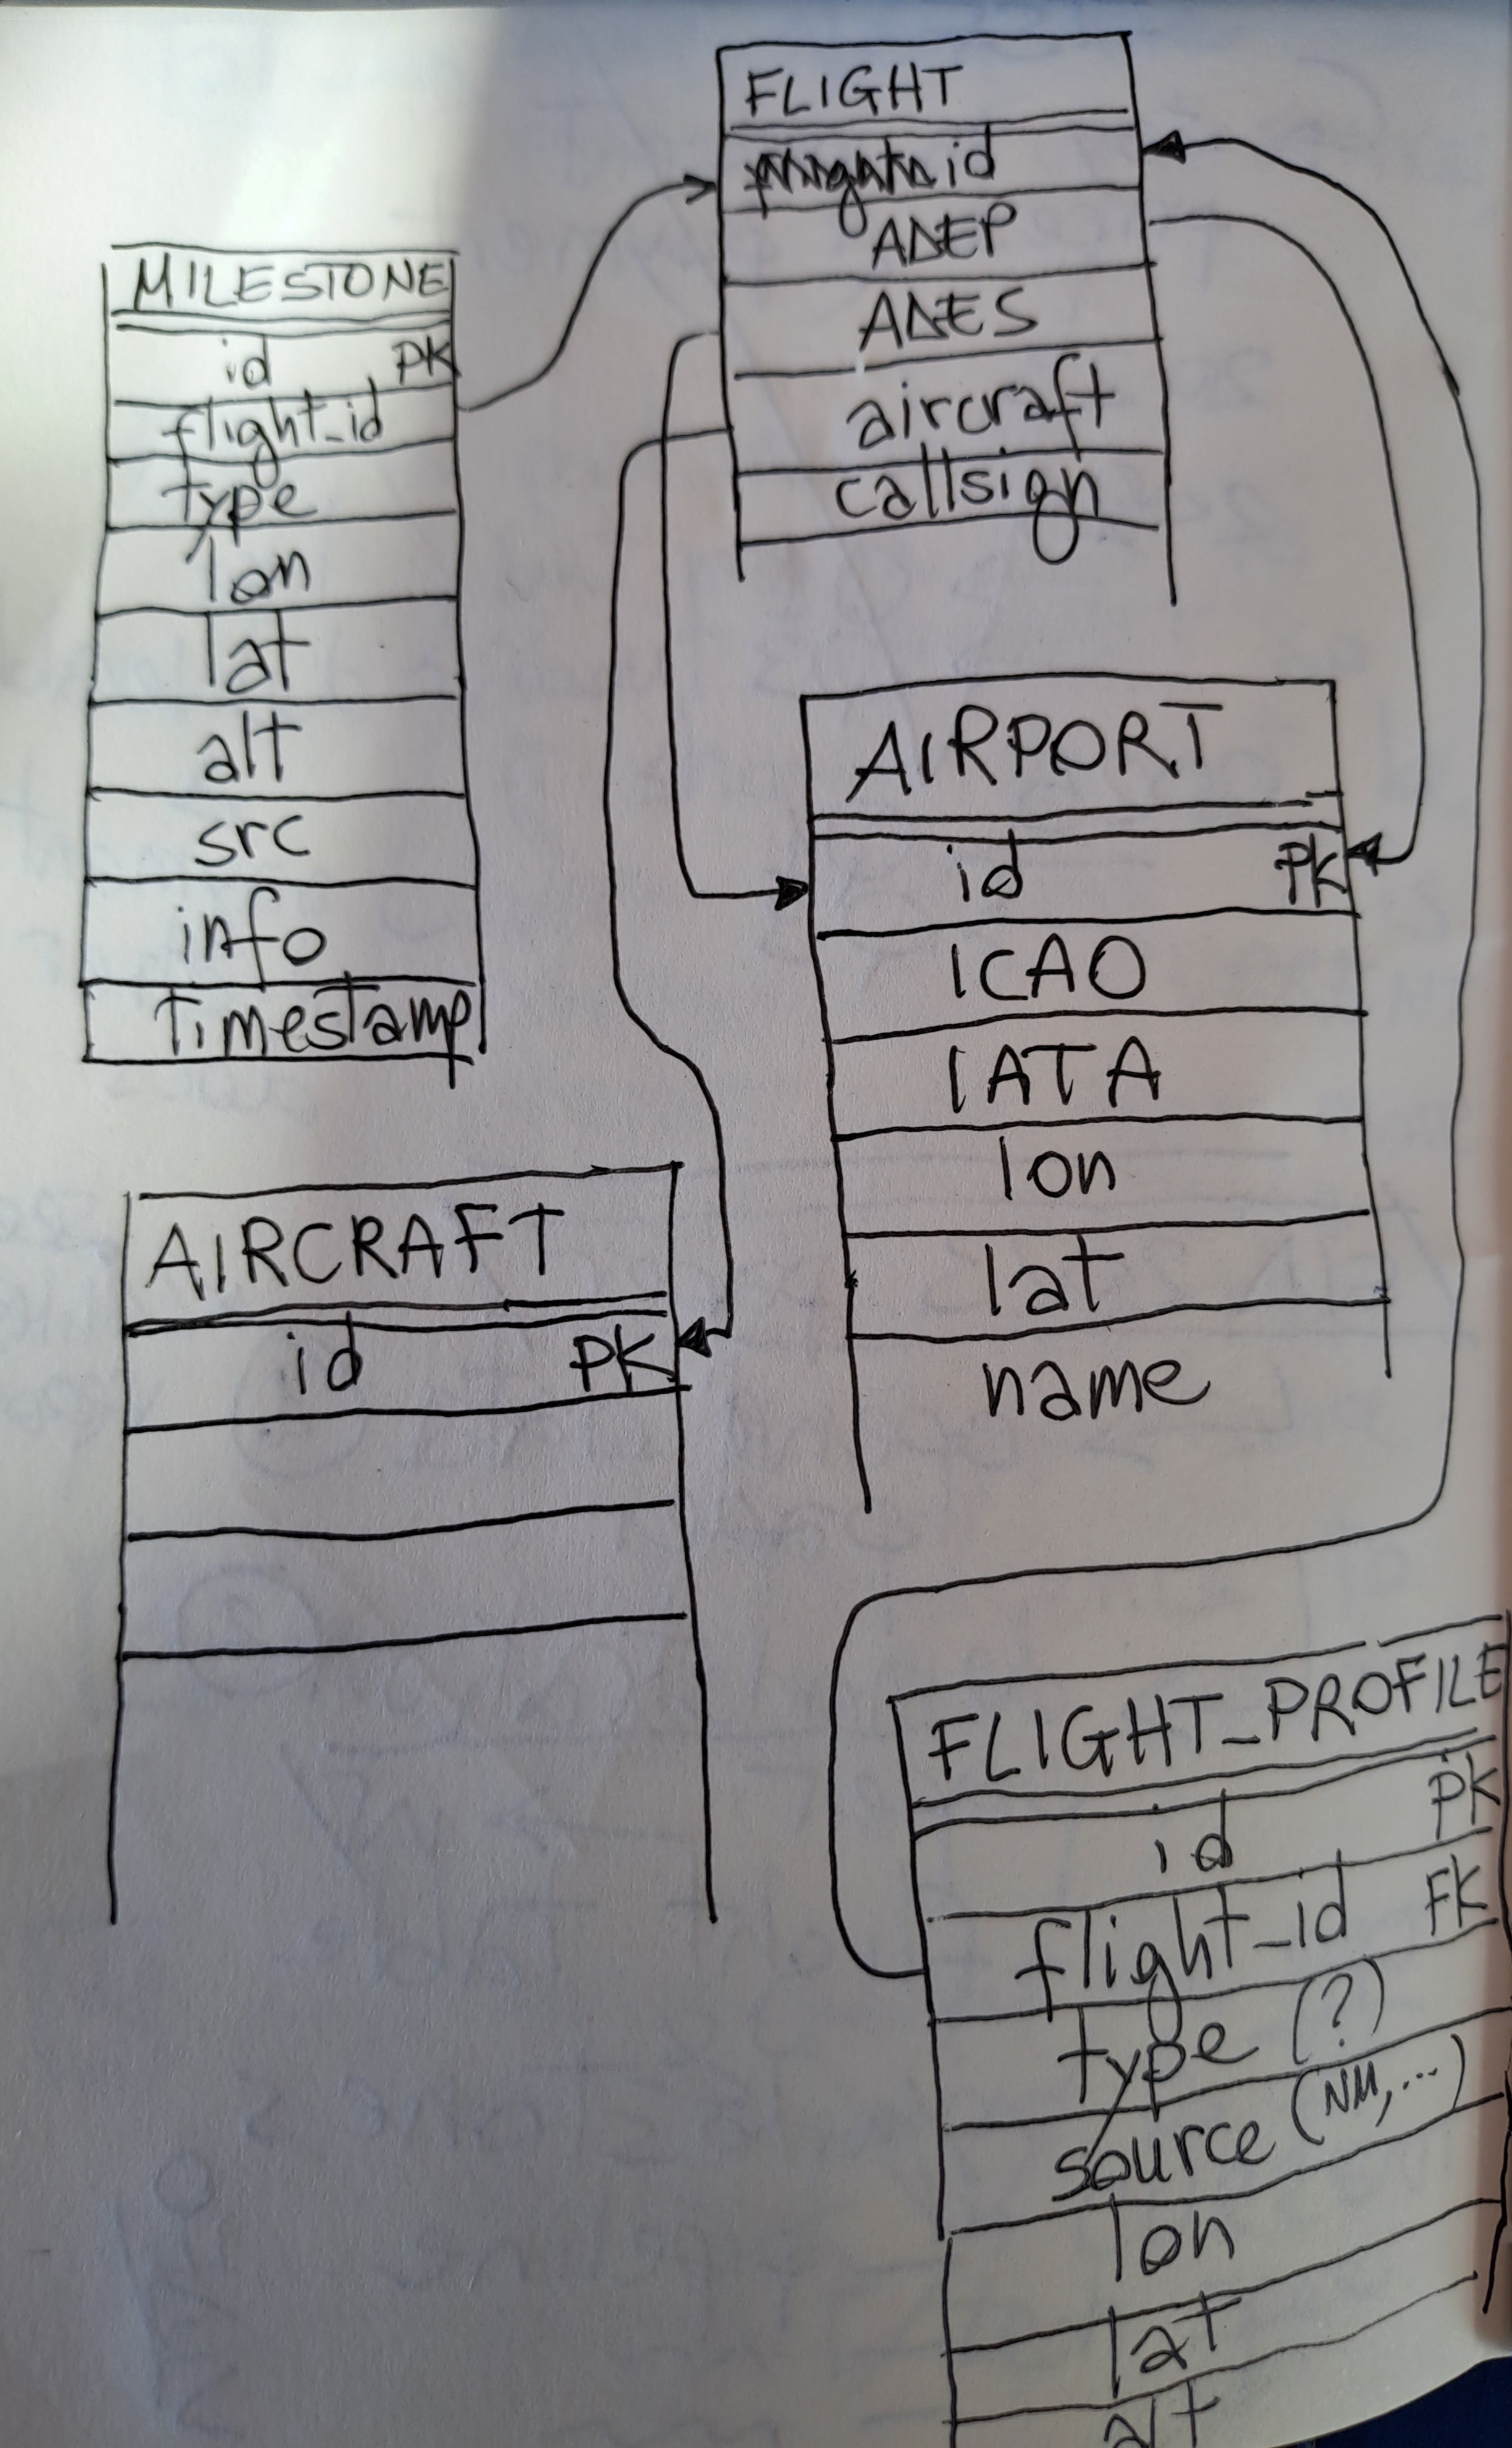 FLIGHT
id
ADEP
ADES
aircraft
callsign
MILESTONE
id PK
flight_id
type
lon
lat
alt
src
info
Timestamp
AIRPORT
id PK
ICAO
IATA
lon
lat
name
AIRCRAFT
id PK
FLIGHT_PROFILE
id PK
flight_id FK
type (?)
source (NM,...)
lon
lat
alt